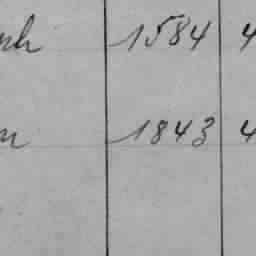 1584 4
1843 4